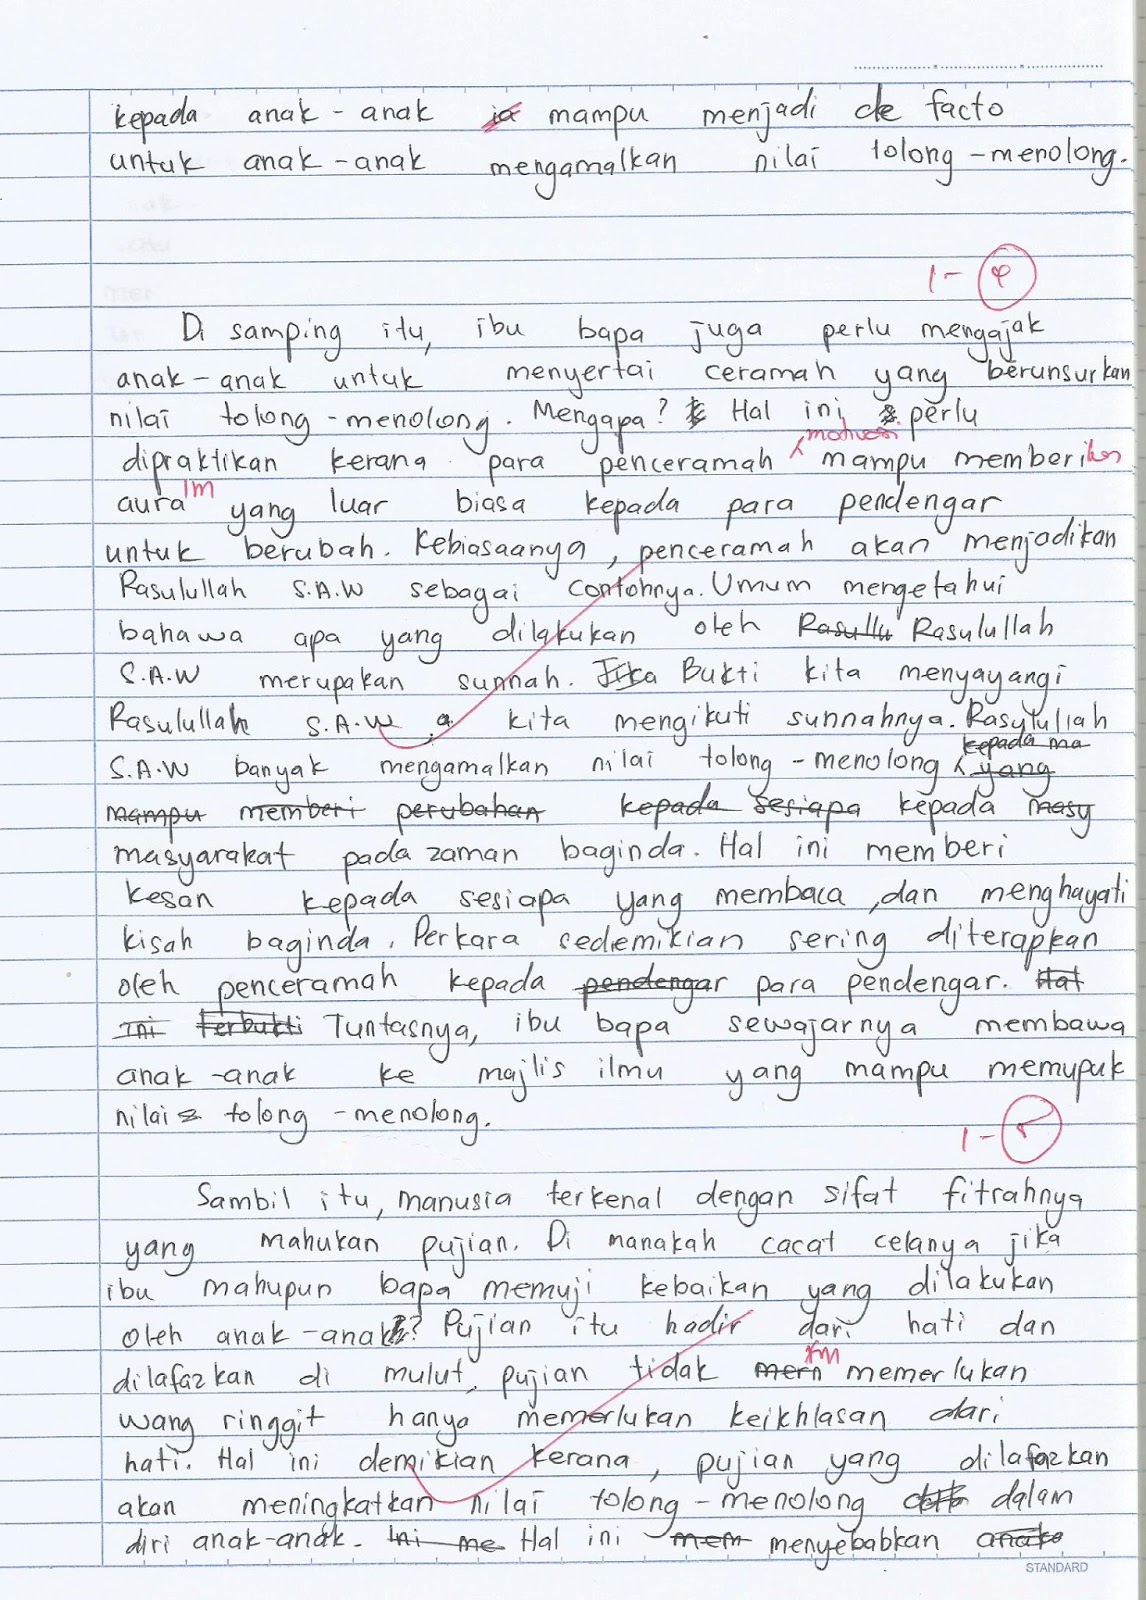 kepada anak-anak mampu menjadi de facto
untuk anak-anak mengamalkan nilai tolong-menolong.
1-
Di samping itu, ibu bapa juga perlu mengajak
anak-anak untuk menyertai ceramah yang berunsurkan
nilai tolong-menolong. Mengapa? Hal ini perlu
dipraktikan kerana para penceramah motivasi mampu memberikan
aura yang luar biasa kepada para pendengar
untuk berubah. Kebiasaanya, penceramah akan menjadikan
Rasulullah S.A.W sebagai contohnya. Umum mengetahui
bahawa apa yang dilakukan oleh Rasullu Rasulullah
S.A.W merupakan sunnah. Jika Bukti kita menyayangi
Rasulullah S.A.W kita mengikuti sunnahnya. Rasulullah
kepada ma
S.A.W banyak mengamalkan nilai tolong-menolong yang
mampu memberi perubahan kepada sesiapa kepada masy
masyarakat pada zaman baginda. Hal ini memberi
kesan kepada sesiapa yang membaca, dan menghayati
kisah baginda. Perkara sedemikian sering diterapkan
oleh penceramah kepada pendengar para pendengar. Hal
ini terbukti Tuntasnya, ibu bapa sewajarnya membawa
anak-anak ke majlis ilmu yang mampu memupuk
nilai tolong-menolong.
1-
Sambil itu, manusia terkenal dengan sifat fitrahnya
yang mahukan pujian. Di manakah cacat celanya jika
ibu mahupun bapa memuji kebaikan yang dilakukan
oleh anak-anak? Pujian itu hadir dari hati dan
dilafazkan di mulut, pujian tidak mem memerlukan
wang ringgit hanya memerlukan keikhlasan dari
hati. Hal ini demikian kerana, pujian yang dilafazkan
akan meningkatkan nilai tolong-menolong dalam
diri anak-anak. Ini me Hal ini mem menyebabkan
STANDARD